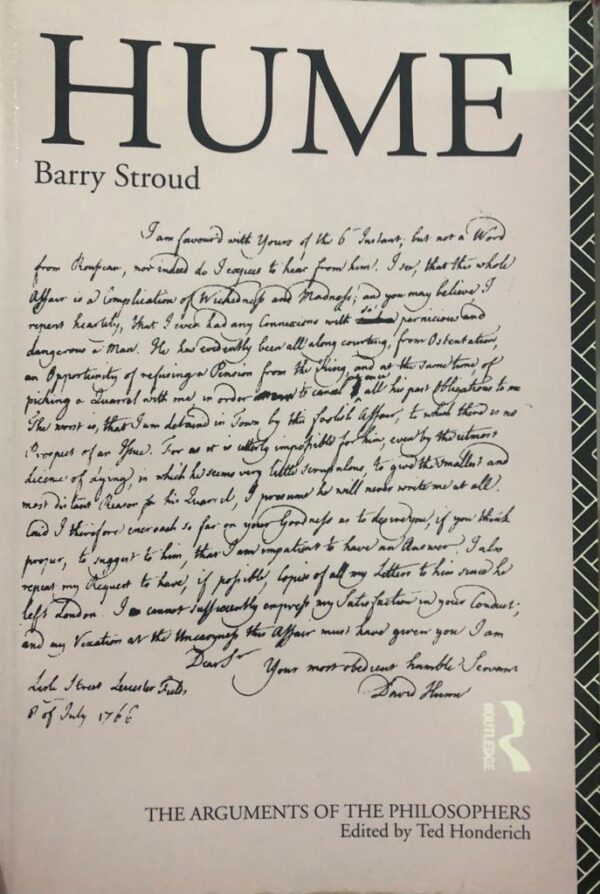 HUME
Barry Stroud
I am favour'd with Yours of the 6th Instant; but not a Word
from Rousseau, nor indeed do I expect to hear from him. I see, that this whole
Affair is a Complication of Wickedness and Madness; and you may believe I
repent heartily, that I ever had any Connexions with so pernicious and
dangerous a Man. He has evidently been all along courting, from Ostentation,
an Opportunity of refusing a Pension from the King, and at the same time of
picking a Quarrel with me, in order to cancel at once all his past Obligations to me
The worst is, that I am detained in Town by this foolish Affair, to which there is no
Prospect of an Issue. For as it is utterly impossible for him, even by the utmost
Licence of Lying, in which he seems very little scrupulous, to give the smallest and
most distant Reason for his Quarrel, I presume he will never write me at all.
Coud I therefore encroach so far on your Goodness as to desire you, if you think
proper, to suggest to him, that I am impatient to have an Answer. I also
repeat my Request to have, if possible, Copies of all my Letters to him since he
left London. I cannot sufficiently express my Satisfaction in your Conduct;
and my Vexation at the Uneasyness this Affair must have given you I am
Dear Sr Your most obedient humble Servant
Lisle Street Leicester Fields David Hume
8 of July 1766
ROUTLEDGE
THE ARGUMENTS OF THE PHILOSOPHERS
Edited by Ted Honderich